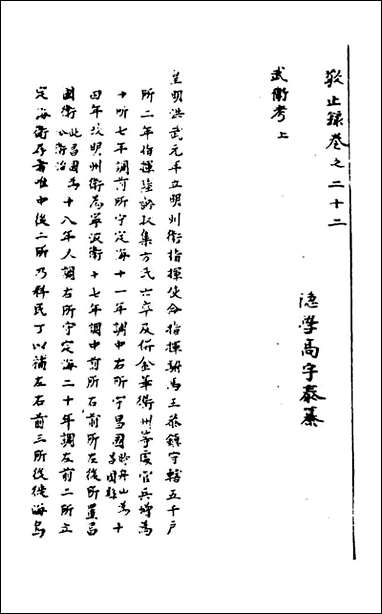 敬止錄卷之二十二
隱學高宇泰纂
武衛考上
皇明洪武元年立明州衛指揮使命指揮駙馬王恭鎮守轄五千戶
所二年指揮陸齡收集方氏亡卒及併金華衢州等處官兵增為
十所七年調前所守定海十一年調中右所守昌國此舟山為昌國縣十
四年改明州衛為寧波衛十七年調中前所右前所左後所置昌
國衛此昌國為今衛治十八年又調右所守定海二十年調左前二所立
定海衛存者唯中後二所乃科民丁以補左右前三所後徙海島